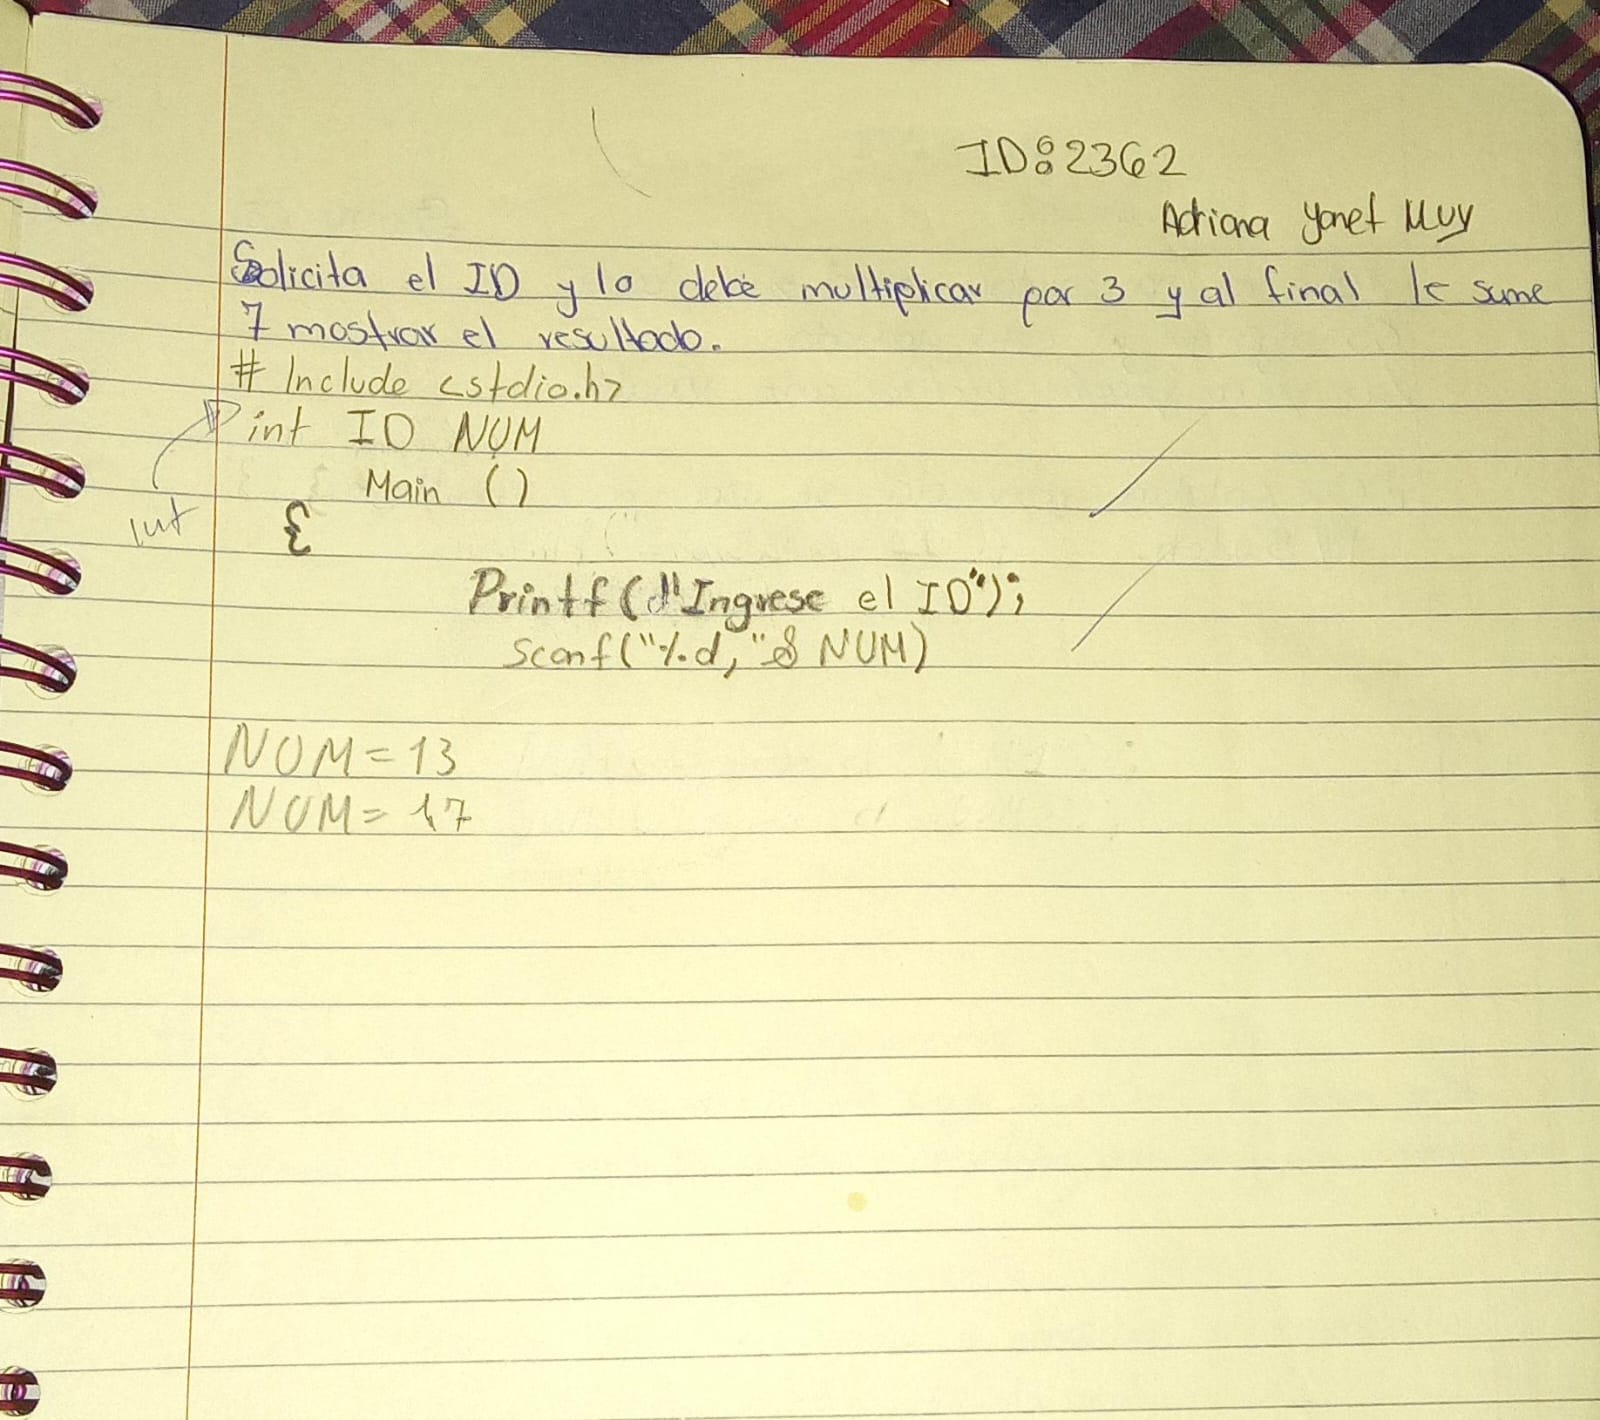 ID:2362
Adriana Yanet Muy
Solicita el ID y lo debe multiplicar por 3 y al final le sume
7 mostrar el resultado.
# Include <stdio.h>
int ID NUM
Main ()
int
{
Printf("Ingrese el ID");
Scanf("%d,"& NUM)
NUM=13
NUM=17